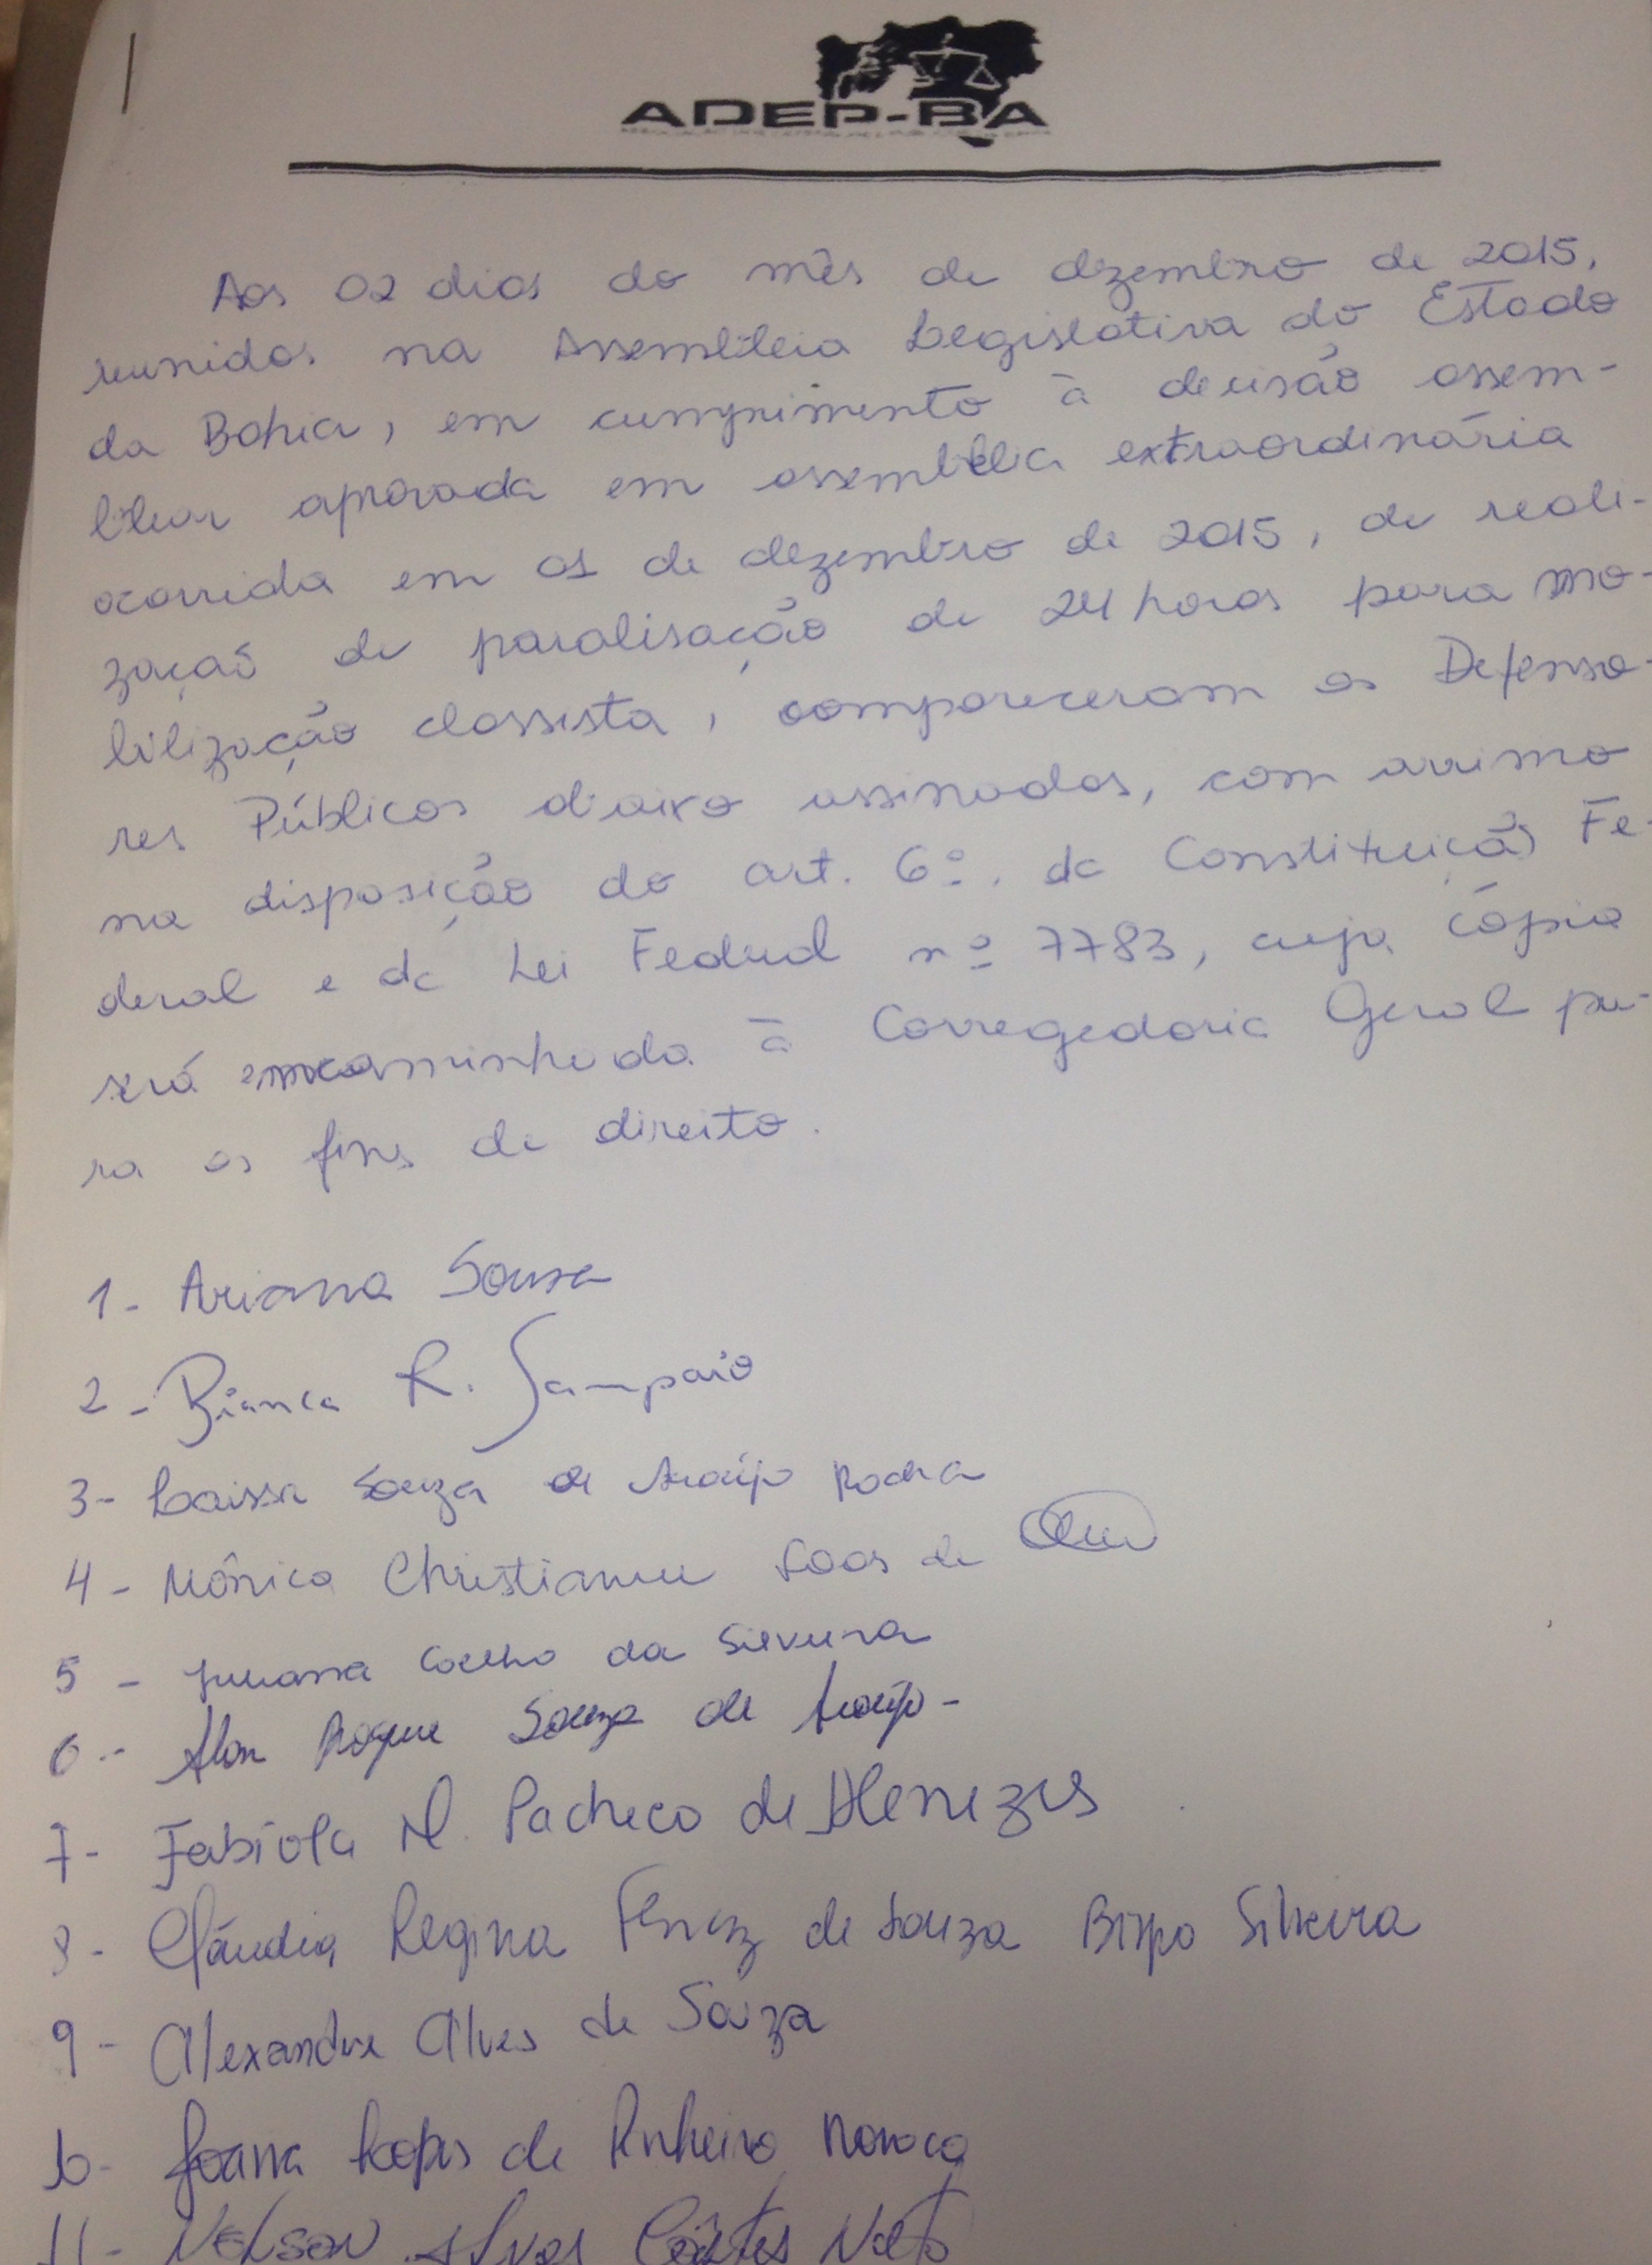 ADEP-BA
Aos 02 dias do mês de dezembro de 2015,
reunidos na Assembleia Legislativa do Estado
da Bahia, em cumprimento à decisão assem-
blear aprovada em assembleia extraordinária
ocorrida em 01 de dezembro de 2015, de reali-
zação de paralisação de 24 horas para mo-
bilização classista, compareceram os Defenso-
res Públicos abaixo assinados, com arrimo
na disposição do art. 6º. da Constituição Fe-
deral e da Lei Federal nº 7783, cuja cópia
será encaminhada à Corregedoria Geral pa-
ra os fins de direito.
1- Ariana Sousa
2- Bianca R. Sampaio
3- Laissa Souza de Araújo Rocha
4- Mônica Christianne Soos de
5- Juliana Coelho da Silveira
6- Alan Roque Souza de Araújo-
7- Fabíola M. Pacheco de Menezes
8- Cláudia Regina de Souza Bispo Silveira
9- Alexandre Alves de Souza
10- Joana Lopes de Pinheiro
11- Nelson Alves Côrtes Neto